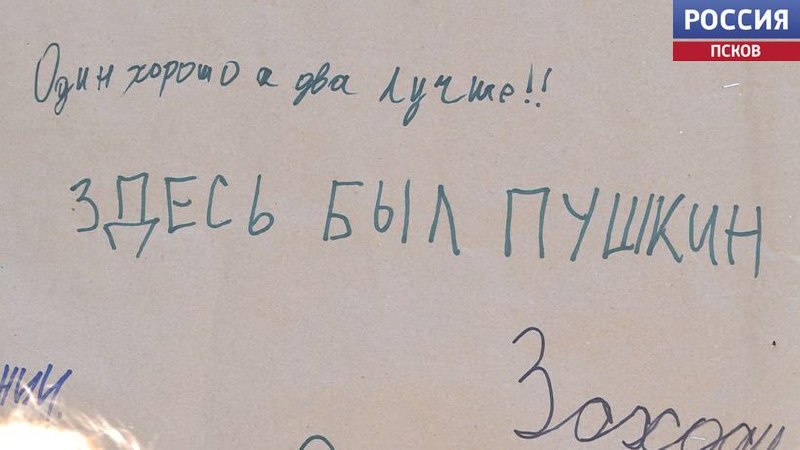 РОССИЯ
ПСКОВ
Один хорошо а два лучше!!
ЗДЕСЬ БЫЛ ПУШКИН